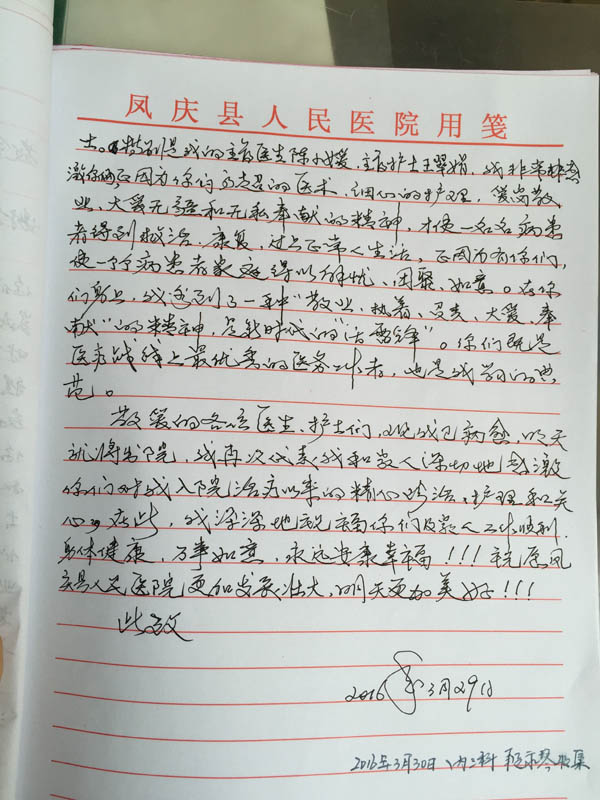 凤庆县人民医院用笺
士。特别是我的主管医生陈小媛、主管护士王翠娟,我非常非常感
激你们,正因为你们高超的医术、细心的护理,爱岗敬
业、大爱无疆和无私奉献的精神,才使一名名病患
者得到救治、康复,过上正常人生活,正因为有你们,
使一个个病患者家庭得以解忧、团聚、如意。在你
们身上,我感到了一种“敬业、执着、大爱、奉
献”的精神,是新时代的“活雷锋”。你们既是
医疗战线上最优秀的医务工作者,也是我学习的典
范。
敬爱的各位医生、护士们,现我已病愈,明天
就将出院,我再次代表我和家人深切地感激
你们对我入院治疗以来的精心诊治、护理和关
心。在此,我深深地祝福你们及家人工作顺利、
身体健康,万事如意,永远安康幸福!!!祝愿凤
庆县人民医院更加发展壮大,明天更加美好!!!
此致
2016年3月29日
2016年3月30日 内二科 收集